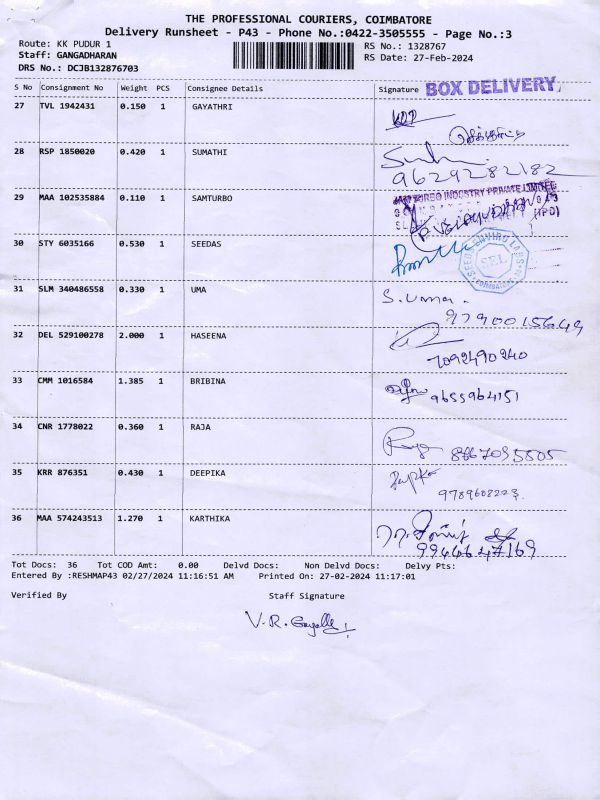 THE PROFESSIONAL COURIERS, COIMBATORE
Delivery Runsheet - P43 - Phone No.:0422-3505555 - Page No.:3
Route: KK PUDUR 1 RS No.: 1328767
Staff: GANGADHARAN RS Date: 27-Feb-2024
DRS No.: DCJB132876703
S No Consignment No Weight PCS Consignee Details Signature BOX DELIVERY
27 TVL 1942431 0.150 1 GAYATHRI
28 RSP 1850020 0.420 1 SUMATHI
9629282182
29 MAA 102535884 0.110 1 SAMTURBO
TURBO INDUSTRY PRIVATE LIMITED
30 STY 6035166 0.530 1 SEEDAS
SEL
31 SLM 340486558 0.330 1 UMA S. Uma.
9790015649
32 DEL 529100278 2.000 1 HASEENA
7092490240
33 CMM 1016584 1.385 1 BRIBINA 9655964151
34 CNR 1778022 0.360 1 RAJA 8867095505
35 KRR 876351 0.430 1 DEEPIKA
9789608223.
36 MAA 574243513 1.270 1 KARTHIKA
9944647169
Tot Docs: 36 Tot COD Amt: 0.00 Delvd Docs: Non Delvd Docs: Delvy Pts:
Entered By :RESHMAP43 02/27/2024 11:16:51 AM Printed On: 27-02-2024 11:17:01
Verified By Staff Signature